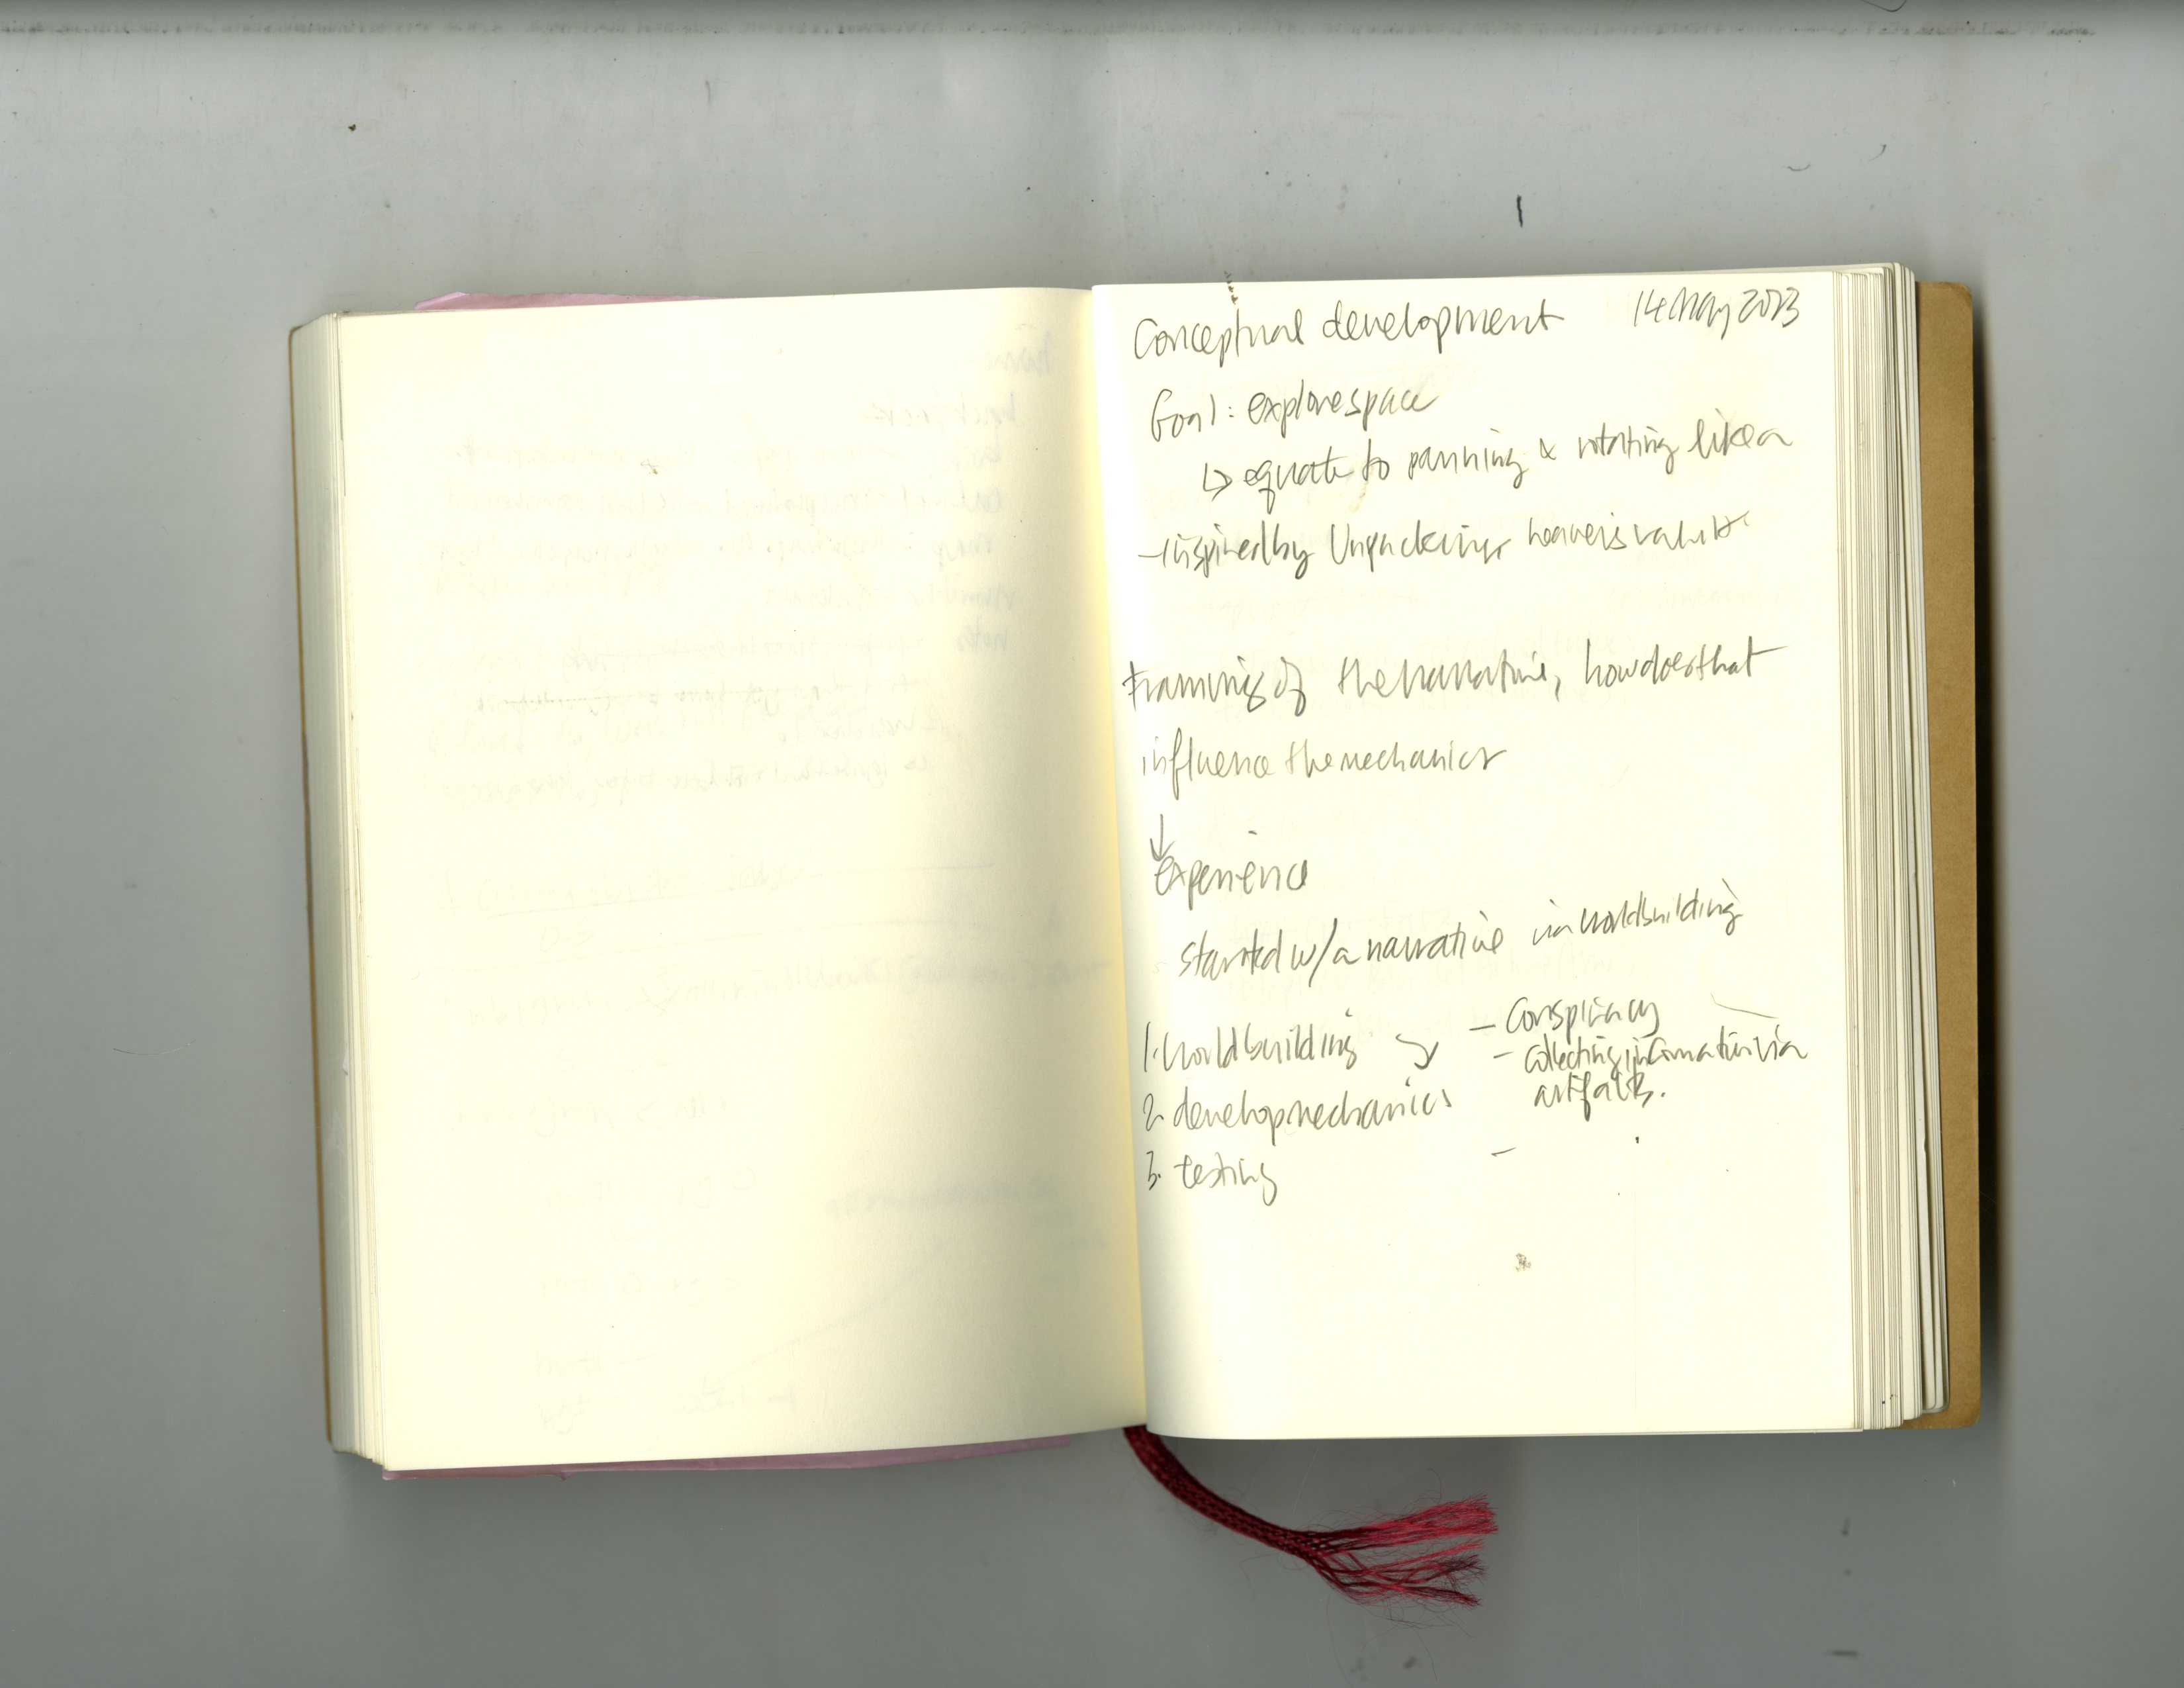 Conceptual development 14 May 2023
Goal: explore space
↳ equate to panning & rotating like a
- inspired by Unpacking, heaven's vault
Framing of the narrative, how does that
influence the mechanics
↓
experience
started w/ a narrative via worldbuilding
1. worldbuilding → - conspiracy
- collecting information via
artifacts.
2. develop mechanics
-
3. testing